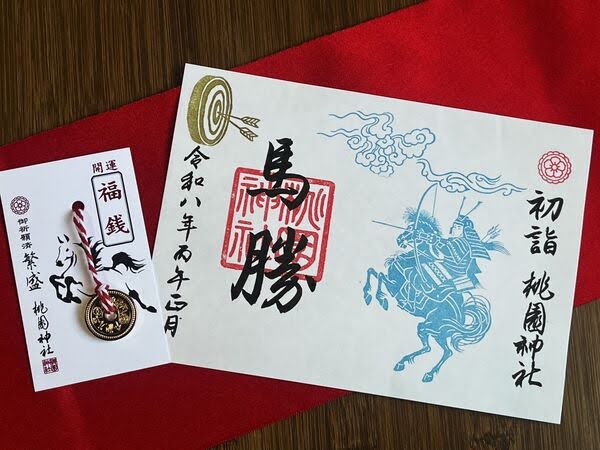 開運
福銭
御祈願済
繁盛
桃園神社
初詣 桃園神社
馬勝
桃園神社
令和八年丙午正月